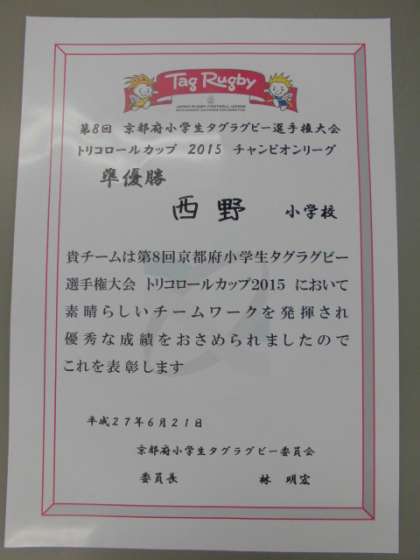 Tag Rugby
JAPAN RUGBY FOOTBALL UNION
第8回 京都府小学生タグラグビー選手権大会
トリコロールカップ 2015 チャンピオンリーグ
準優勝
西野 小学校
貴チームは第8回京都府小学生タグラグビー
選手権大会 トリコロールカップ2015 において
素晴らしいチームワークを発揮され
優秀な成績をおさめられましたので
これを表彰します
平成27年6月21日
京都府小学生タグラグビー委員会
委員長 林 明宏